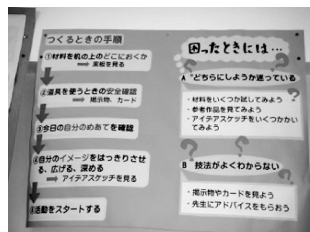 つくるときの手順
①材料を机の上のどこにおくか
➡ 黒板を見る
②道具を使うときの安全確認
➡ 掲示物、カード
③今日の自分のめあてを確認
④自分のイメージをはっきりさせ
る、広げる、深める
➡ アイデアスケッチを見る
⑤活動をスタートする
困ったときには…
A どちらにしようか迷っている
・材料をいくつか試してみよう
・参考作品を見てみよう
・アイデアスケッチをいくつかかい
てみよう
B 技法がよくわからない
・掲示物やカードを見よう
・先生にアドバイスをもらおう